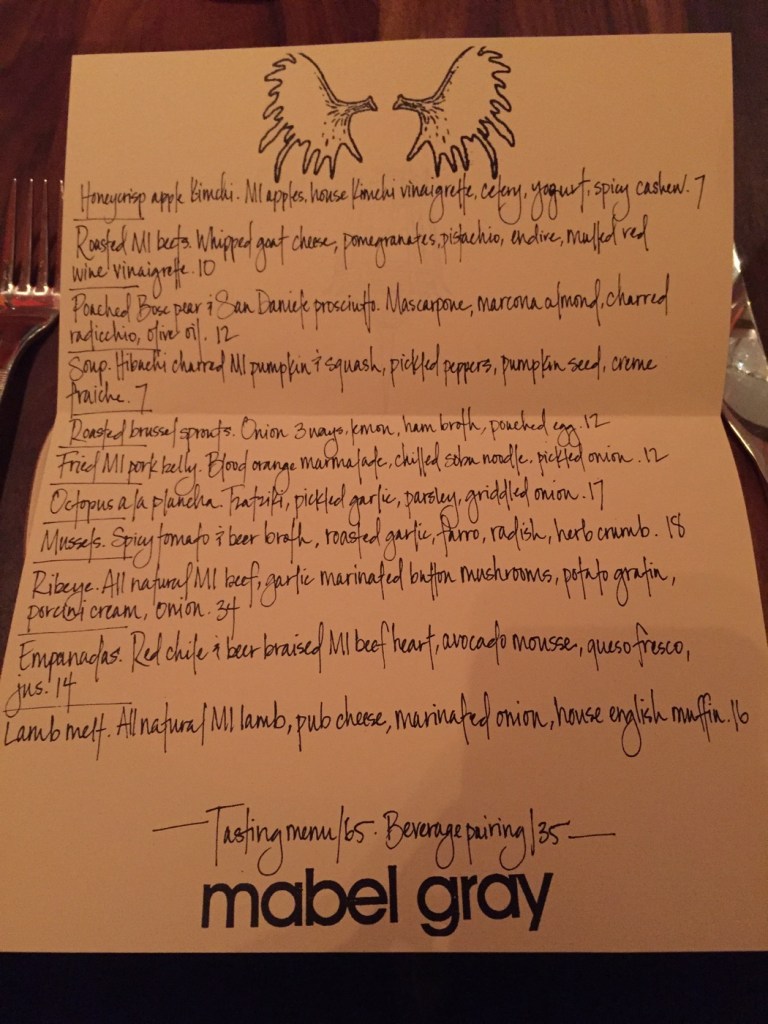 Honeycrisp apple Kimchi. MI apples, house Kimchi vinaigrette, celery, yogurt, spicy cashew. 7
Roasted MI beets. Whipped goat cheese, pomegranates, pistachio, endive, mulled red
wine vinaigrette. 10
Poached Bosc pear & San Daniele prosciutto. Mascarpone, marcona almond, charred
radicchio, olive oil. 12
Soup. Hibachi charred MI pumpkin & squash, pickled peppers, pumpkin seed, creme
fraiche. 7
Roasted brussel sprouts. Onion 3 ways, lemon, ham broth, poached egg. 12
Fried MI pork belly. Blood orange marmalade, chilled soba noodle, pickled onion. 12
Octopus a la plancha. Tzatziki, pickled garlic, parsley, griddled onion. 17
Mussels. Spicy tomato & beer broth, roasted garlic, farro, radish, herb crumb. 18
Ribeye. All natural MI beef, garlic marinated button mushrooms, potato gratin,
porcini cream, onion. 34
Empanadas. Red chile & beer braised MI beef heart, avocado mousse, queso fresco,
jus. 14
Lamb melt. All natural MI lamb, pub cheese, marinated onion, house english muffin. 16
— Tasting menu/65 · Beverage pairing/35 —
mabel gray